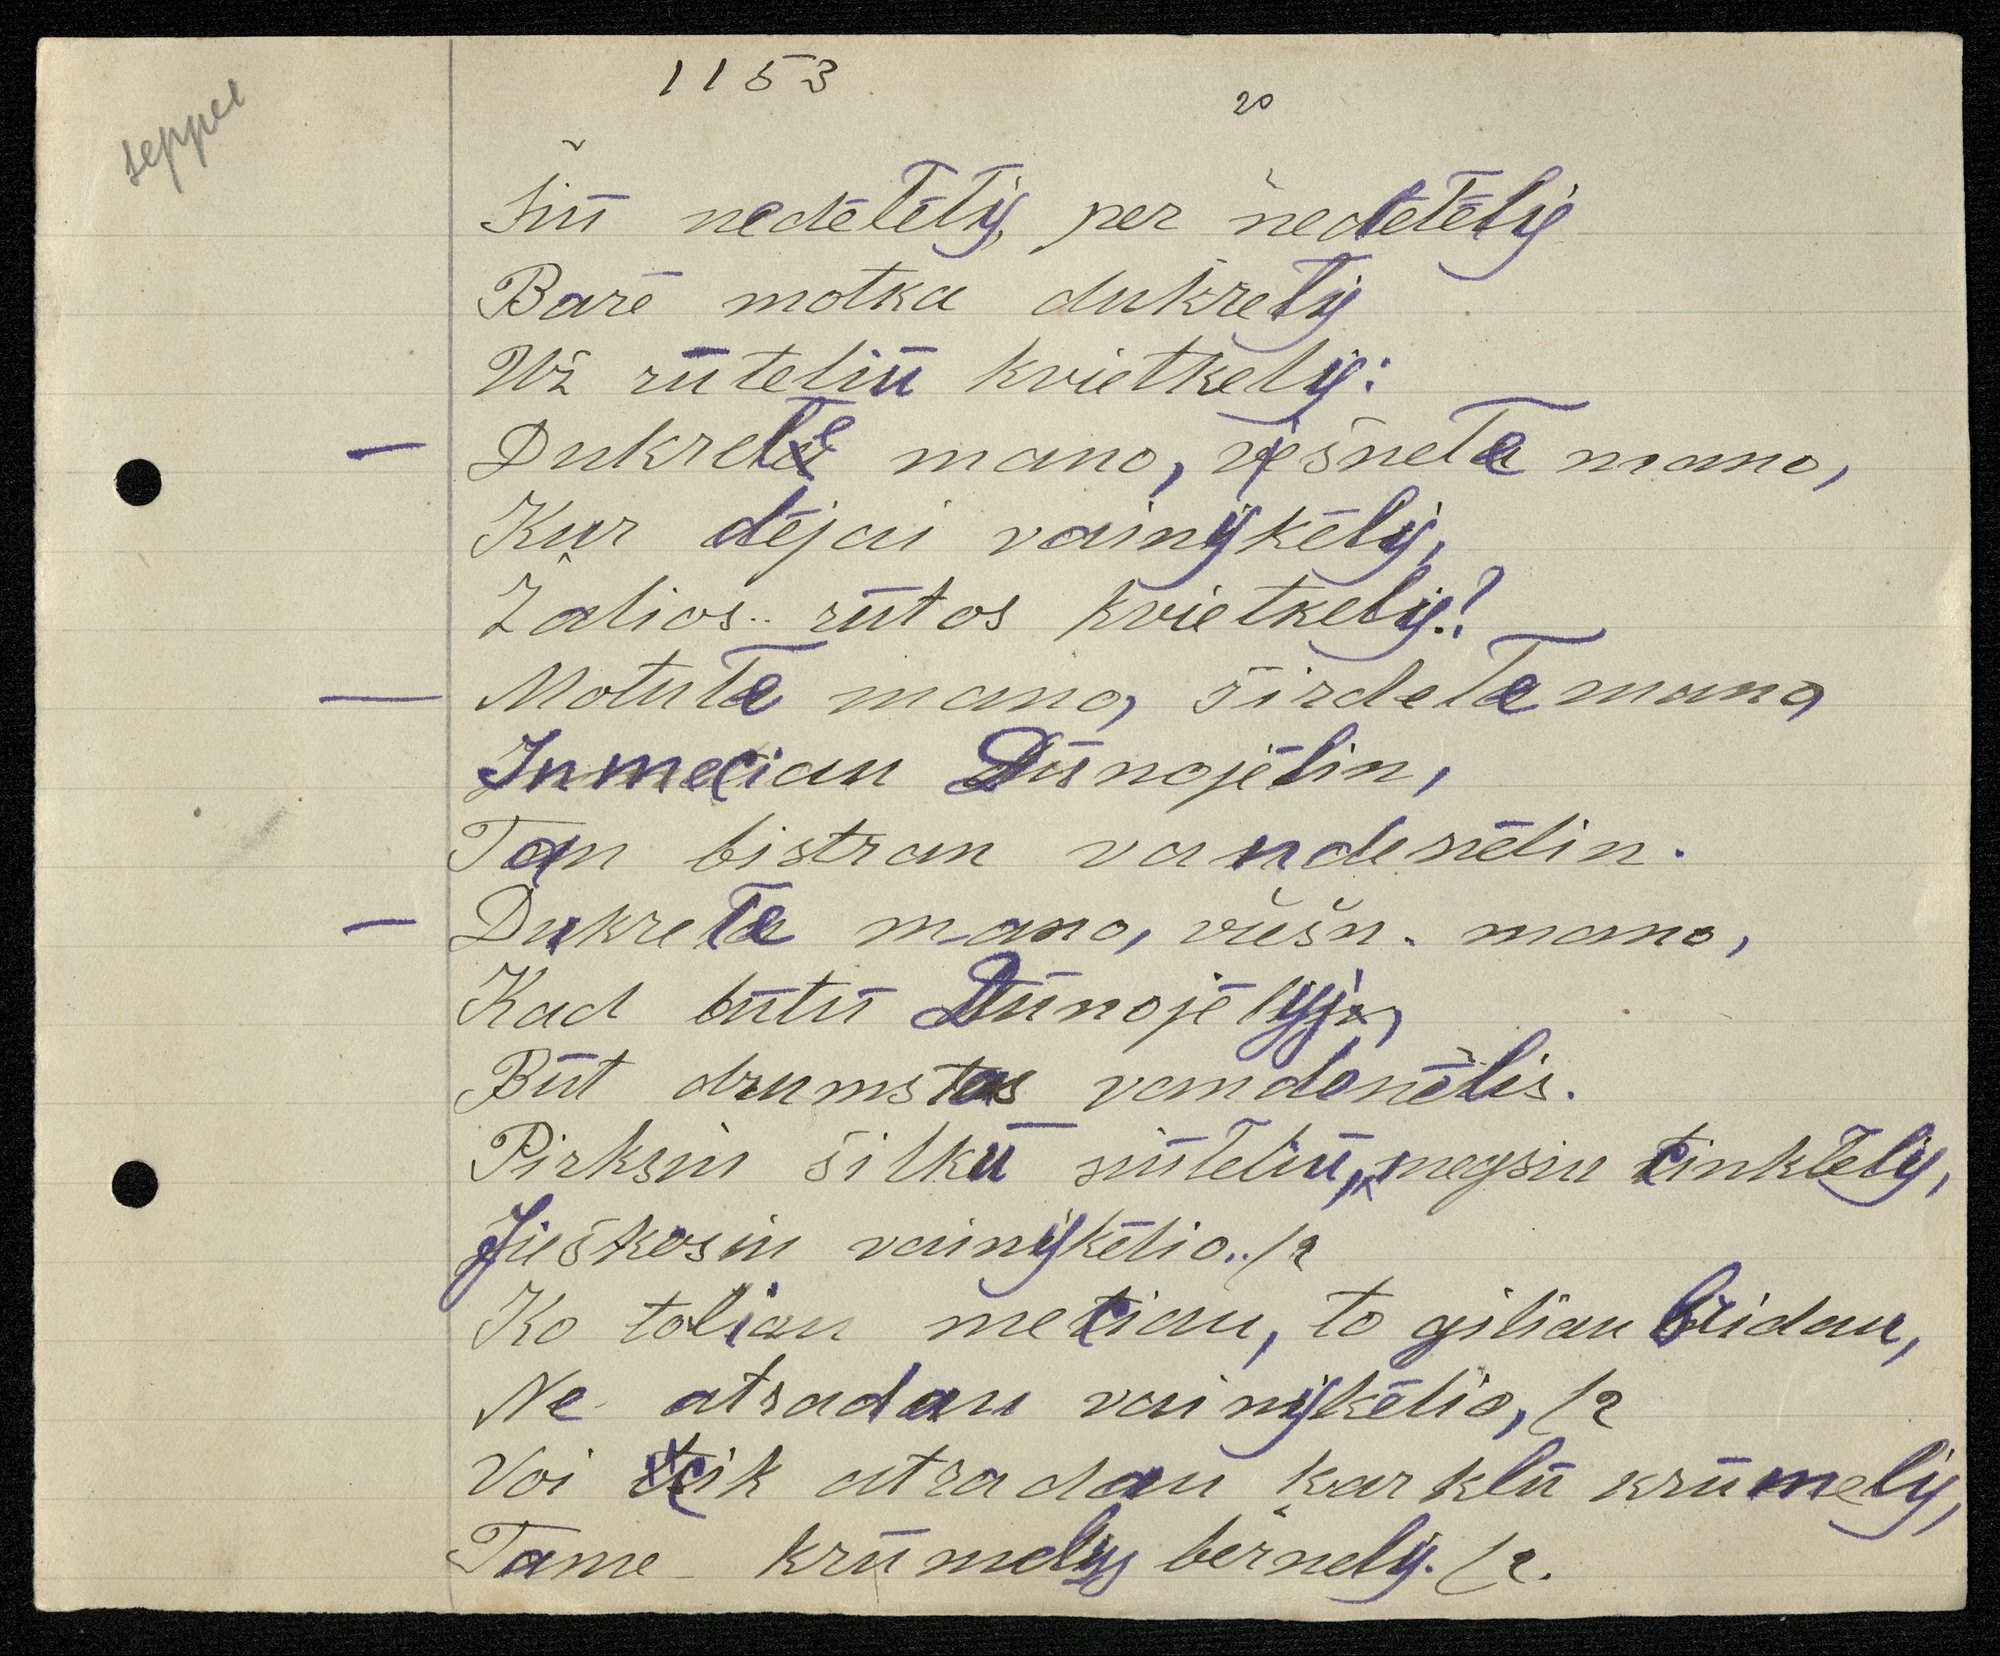 1153
20
Šiū nedėlėlij, per nedėlėlij
Barė motka dukrelij
Už rūteliū kvietkelij:
— Dukrele mano, viešnele mano,
Kur dėjai vainijkėlij,
Žalios rūtos kvietkelij?
— Motule mano, širdele mano,
Inmeciau Dūnojėlin,
Tan bistran vandenėlin.
— Dukrele mano, viešn. mano,
Kad būtū Dūnojėlij,
Būt drumstas vandenėlis.
Pirksiu šilkū siūleliū, megsiu tinklelij,
Jieškosiu vainijkėlio. /2
Ko toliau meciau, to giliau bridau,
Ne atradau vainijkėlio, /2
Voi tik atradau karklū krūmelij,
Tame krūmelij bernelij. /2.